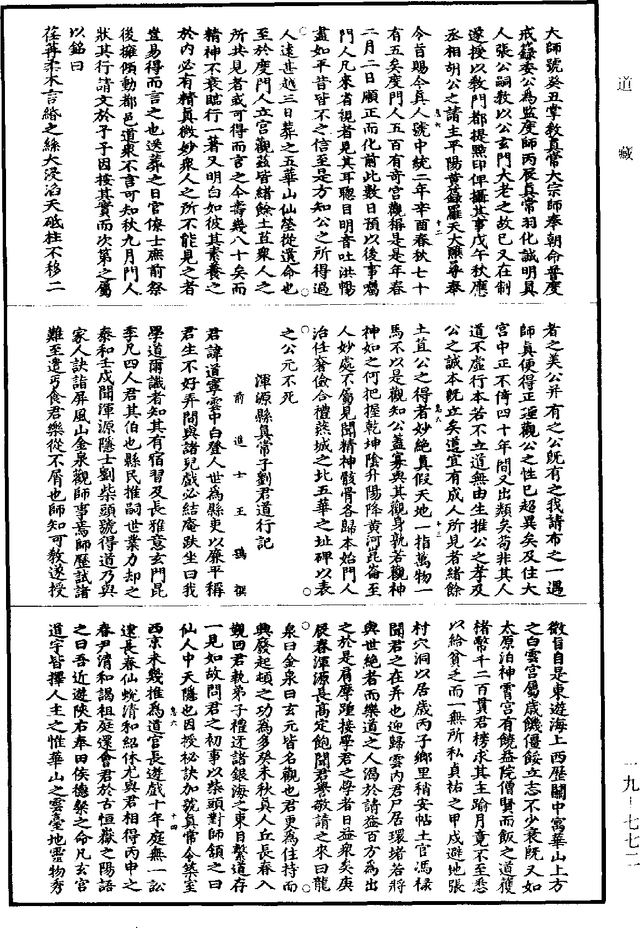 道藏
大師號癸丑掌教真常大宗師奉朝命普度
戒籙委公為監度師丙辰真常羽化誠明真
人張公嗣教以公玄門大老之故已又在制
遂授以教門都提點印俾攝其事戊午秋應
丞相胡公之請主平陽黃籙羅天大醮尋奉
令旨賜令真人號中統二年辛酉春秋七十
有五矣度門人五百有奇宮觀稱是是年春
二月二日順正而化前此數日預以後事囑
門人凡來省視者見其耳聰目明音吐洪暢
盡如平昔皆不之信至是方知公之所得過
人遠甚越三日葬之五華山仙塋從遺命也
至於度門人立宮觀茲皆緒餘土苴衆人之
所共見者或可得而言之今壽幾八十矣而
精神不衰臨行一著又明白如彼其素養之
於內必有精真微妙衆人之所不能見之者
豈易得而言之也送葬之日官僚士庶前祭
後擁傾動都邑道衆不言可知秋九月門人
狀其行請文於予予因按其實而次第之屬
以銘曰
荏苒柔木言緡之絲大浸滔天砥柱不移二
者之美公并有之公既有之我請布之一遇
師真便得正理觀公之性已超異矣及住大
宮中正不倚四十年間又出類矣苟非其人
道不虛行本若不立道無由生推公之孝及
公之誠本既立矣道宜有成人所見者緒餘
土苴公之得者妙絕真假天地一指萬物一
馬不以是觀知公蓋寡與其觀身孰若觀神
神如之何把握乾坤陰升陽降黃河崑崙至
人妙處不屬見聞精神骸骨各歸本始門人
治任奢儉合禮燕城之北五華之址碑以表
之公元不死
渾源縣真常子劉君道行記
前進士王鶚撰
君諱道寧雲中白登人世為縣吏以廉平稱
君生不好弄間與諸兒戲必結庵趺坐曰我
學道爾識者知其有宿習及長雅意玄門昆
季凡四人君其伯也縣民推嗣世業力却之
泰和壬戌聞渾源隱士劉柴頭號得道乃與
家人訣詣屏風山金泉觀師事焉師歷試諸
難至遣丐食君樂從不屑也師知可教遂授
微旨自是東遊海上西歷關中寓華山上方
之白雲宮屬歲饑僵餒立志不少衰既又如
太原泊神霄宮有饒益院僧賢而飯之道獲
楮幣千二百貫君榜求其主踰月竟不至悉
以給貧乏而一無所私貞祐之甲戌避地張
村穴洞以居歲丙子鄉里稍安帖土官馮祿
聞君之在弄也迎歸雲內君尸居環堵若將
與世絕者而樂道之人渴於請益百方為出
之於是肩摩踵接學君之學者日益衆矣庚
辰春渾源長高定飽聞君譽敬請之來曰龍
泉曰金泉曰玄元皆名觀也君更為住持而
興發起頓之功為多癸未秋真人丘長春入
覲回君執弟子禮迓諸銀海之東目繫道存
一見如故問君之初事以柴頭對師頷之曰
仙人中天隱也因授秘訣加號真常令築室
西京未幾推為道官長遊戲十年庭無一訟
逮長春仙蛻清和紹休尤與君相得丙申之
春尹清和謁祖庭還會君於古恒嶽之陽語
之曰吾近遊陝右奉田侯德燦之命凡玄宮
道宇皆擇人主之惟華山之雲臺地靈物秀
一九-七七二